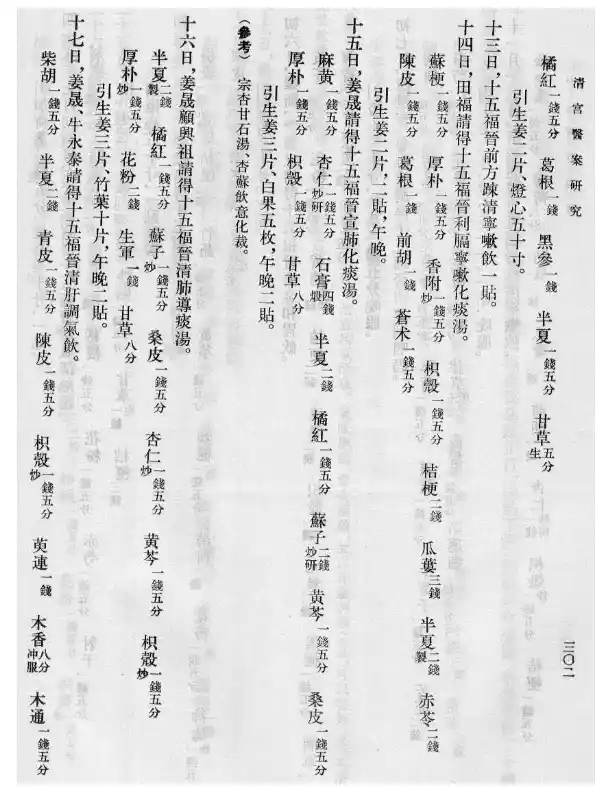 清宮醫案研究
橘紅一錢五分 葛根一錢 黑參一錢 半夏一錢五分 甘草五分生
引生姜二片、燈心五十寸。
十三日，十五福晉前方踈清寧嗽飲一貼。
十四日，田福請得十五福晉利膈寧嗽化痰湯。
蘇梗一錢五分 厚朴一錢五分 香附一錢五分炒 枳殼一錢五分 桔梗二錢 瓜蔞三錢 半夏二錢製 赤苓二錢
陳皮一錢五分 葛根一錢 前胡一錢 蒼术一錢五分
引生姜二片，二貼，午晚。
十五日，姜晟請得十五福晉宣肺化痰湯。
麻黃一錢五分 杏仁一錢五分炒研 石膏四錢煅 半夏二錢 橘紅一錢五分 蘇子二錢炒研 黃芩一錢五分 桑皮一錢五分
厚朴一錢五分 枳殼一錢五分 甘草八分
引生姜三片、白果五枚，午晚二貼。
（參考） 宗杏甘石湯、杏蘇飲意化裁。
十六日，姜晟顧興祖請得十五福晉清肺導痰湯。
半夏二錢製 橘紅一錢五分 蘇子一錢五分炒 桑皮一錢五分 杏仁一錢五分炒 黃芩一錢五分 枳殼一錢五分炒
厚朴一錢五分炒 花粉二錢 生軍一錢 甘草八分
引生姜三片、竹葉十片，午晚二貼。
十七日，姜晟、牛永泰請得十五福晉清肝調氣飲。
柴胡一錢五分 半夏二錢 青皮一錢五分 陳皮一錢五分 枳殼一錢五分炒 萸連一錢 木香八分冲服 木通一錢五分
三〇二